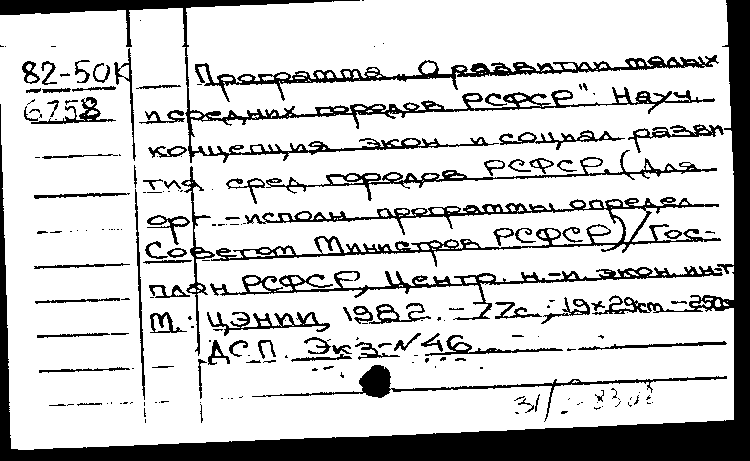 82-50К Программа „О развитии малых
6758 и средних городов РСФСР": Науч.
концепция экон и социал разви-
тия сред городов РСФСР. (Для
орг.-исполн программы определ
Советом Министров РСФСР)/Гос-
план РСФСР, Центр. н.-и. экон. ин-т.
М.: ЦЭНИИ, 1982. -77с.; 19×29см. -250э
ДСП. Экз-N 46